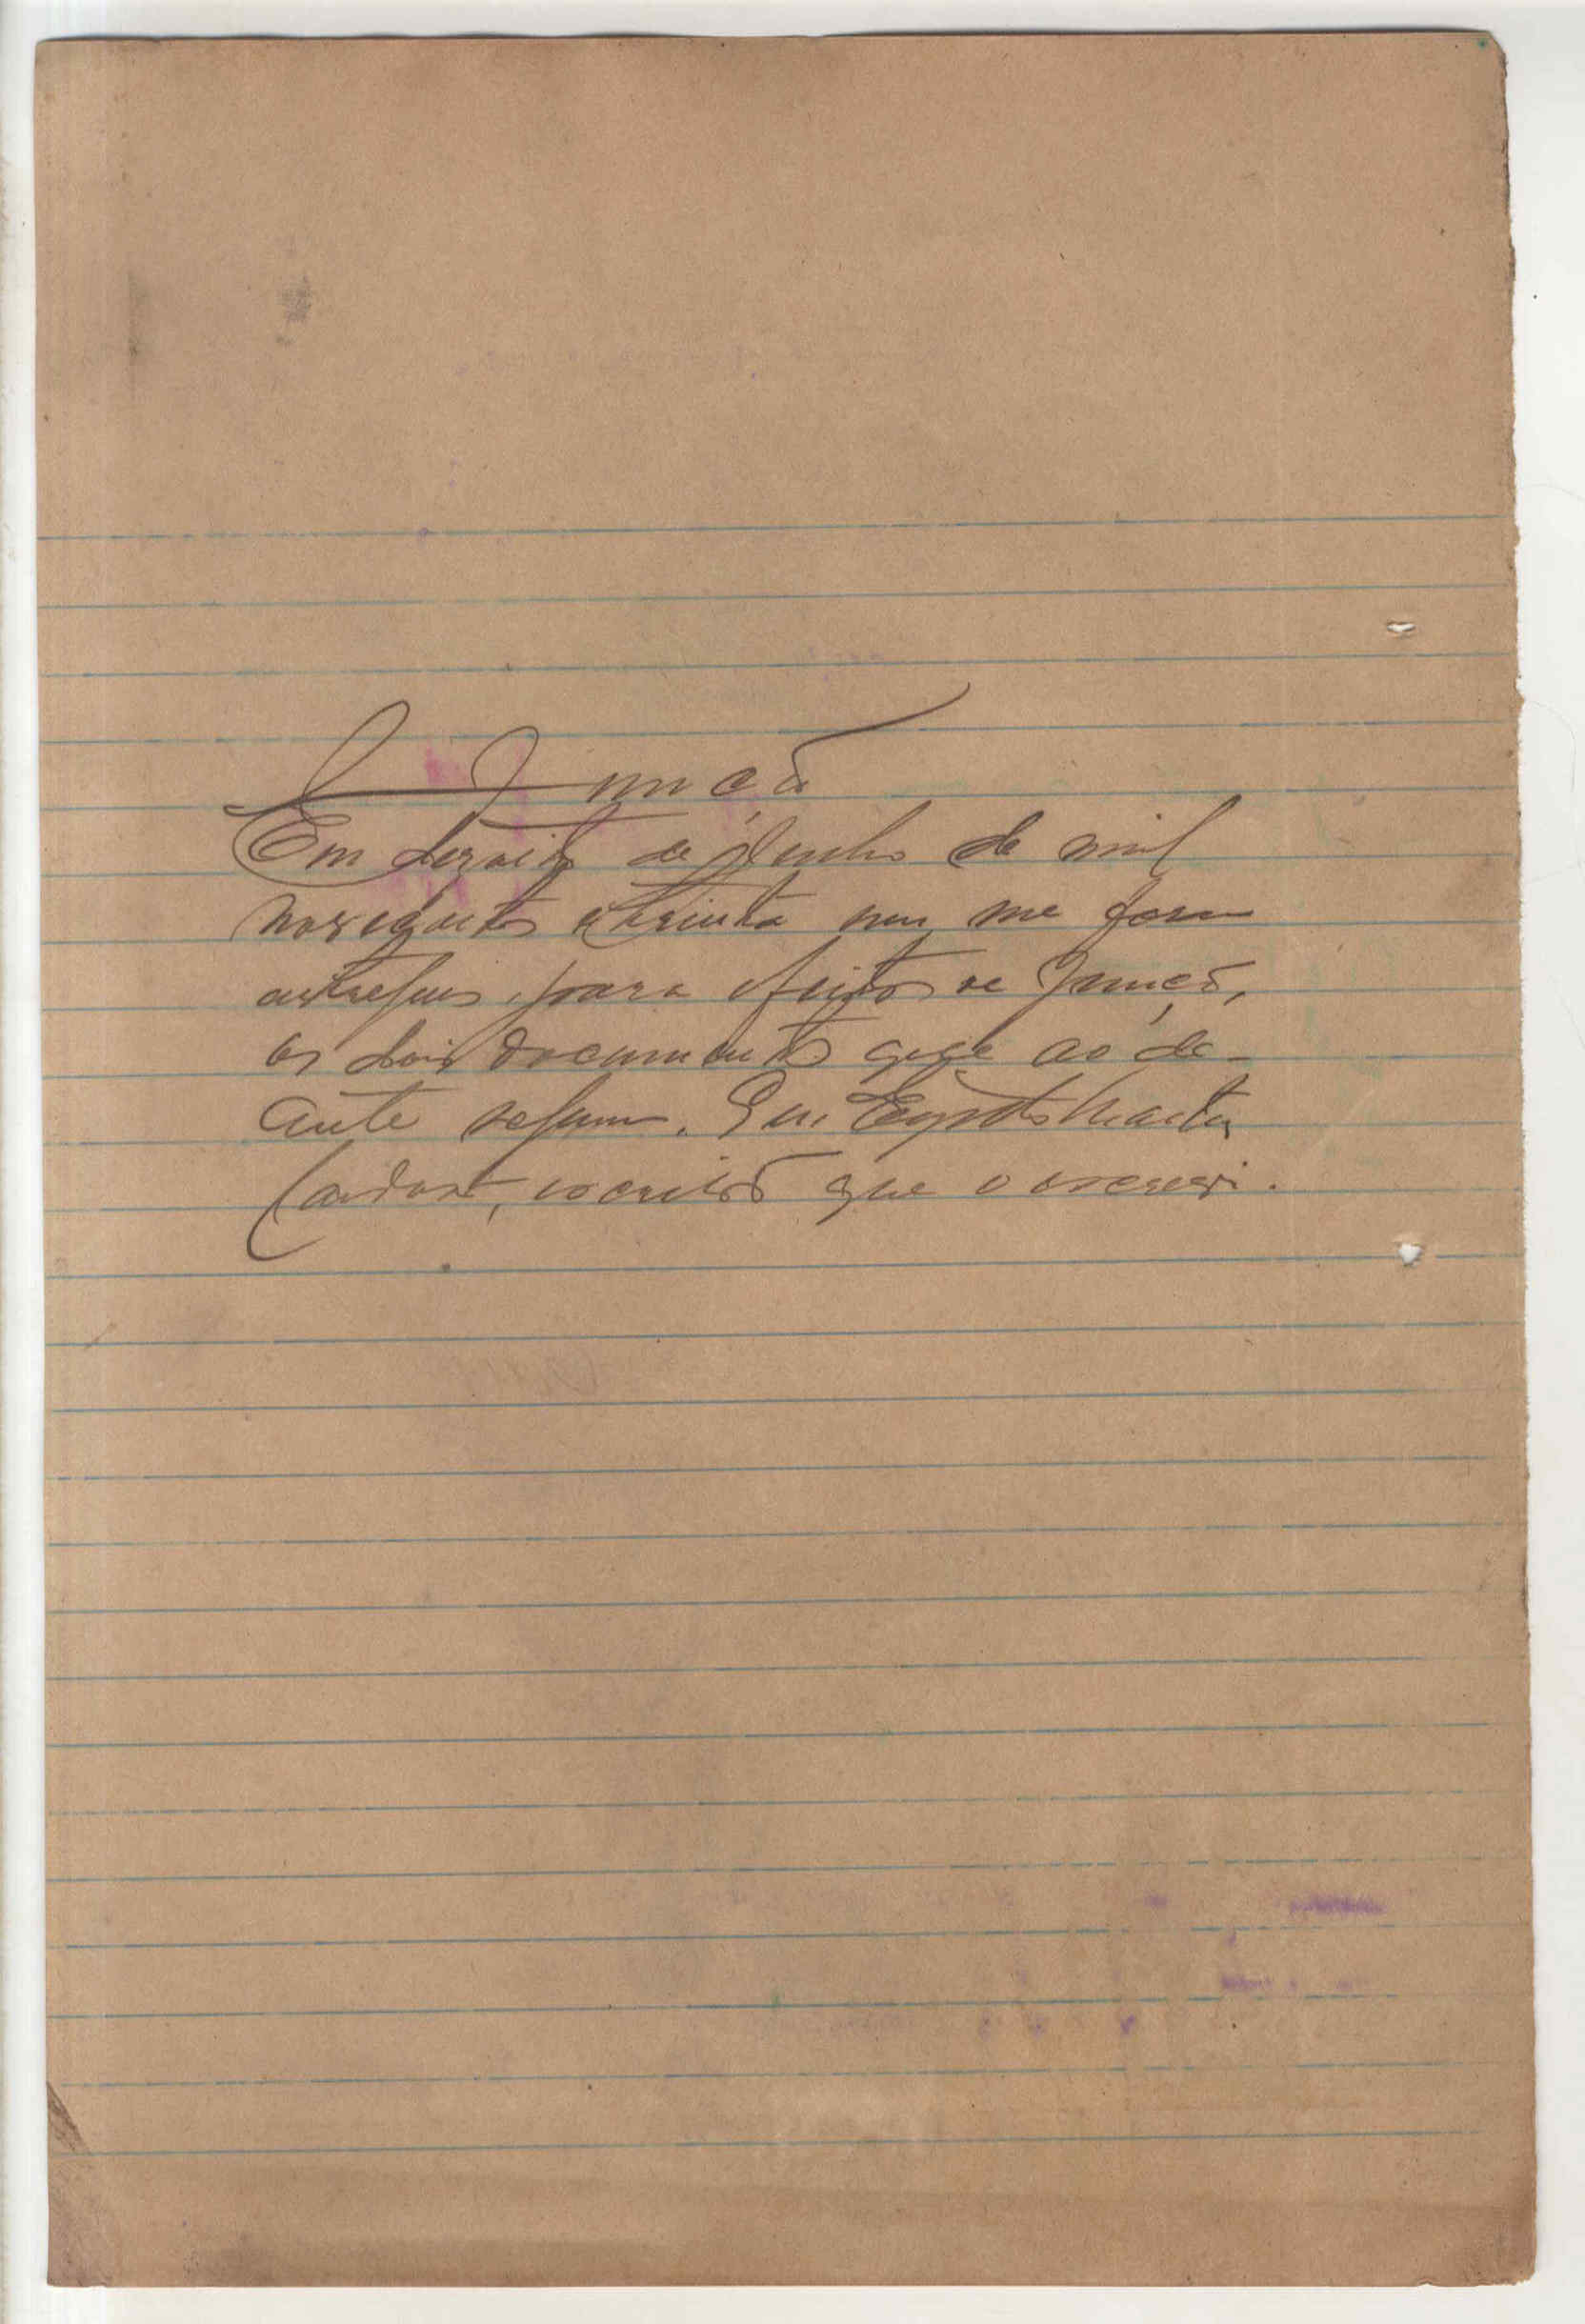 Juncão
Em dezoito de Junho de mil
novecentos e trinta um me foram
entregues, para efeitos de Juncão,
os dois documentos que ao de-
ante seguem. Eu, Martins
Cardoso, escrivão que o escrevi.